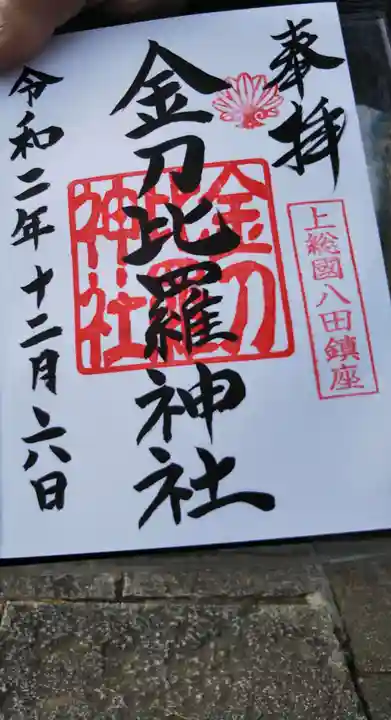 奉拝
上総國八田鎮座
金刀比羅神社
金刀比羅神社
令和二年十二月六日